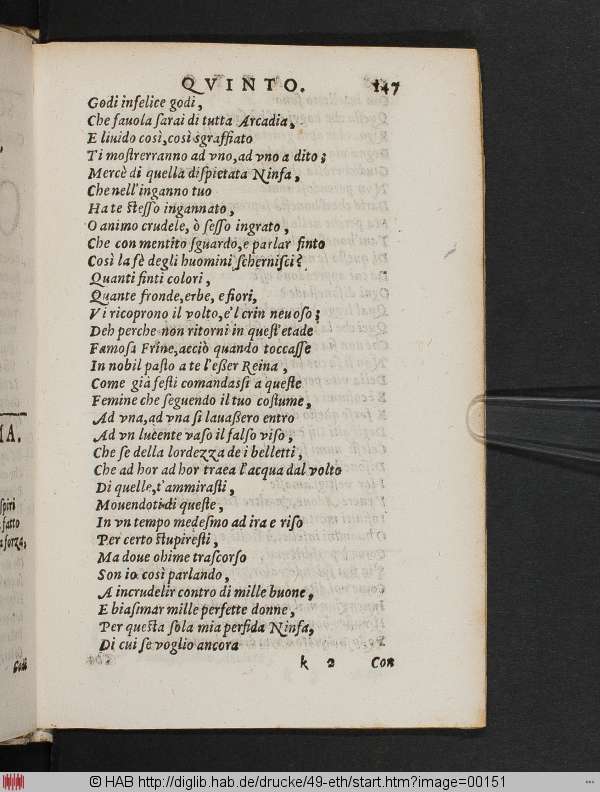 QVINTO. 147
Godi infelice godi,
Che fauola ſarai di tutta Arcadia,
E liuido così, così sgraffiato
Ti moſtrerranno ad vno, ad vno a dito;
Mercè di quella diſpietata Ninfa,
Che nell'inganno tuo
Ha te ſteſſo ingannato,
O animo crudele, ò ſeſſo ingrato,
Che con mentito ſguardo, e parlar finto
Così la fè degli huomini ſcherniſci?
Quanti finti colori,
Quante fronde, erbe, e fiori,
Vi ricoprono il volto, e'l crin neuoſo;
Deh perche non ritorni in queſt'etade
Famoſa Frine, acciò quando toccaſſe
In nobil paſto a te l'eßer Reina,
Come già feſti comandaſsi a queſte
Femine che ſeguendo il tuo coſtume,
Ad vna, ad vna ſi lauaßero entro
Ad vn lucente vaſo il falſo viſo,
Che ſe della lordezza de i belletti,
Che ad hor ad hor traea l'acqua dal volto
Di quelle, t'ammiraſti,
Mouendoti di queſte,
In vn tempo medeſmo ad ira e riſo
Per certo ſtupireſti,
Ma doue ohime traſcorſo
Son io così parlando,
A incrudelir contro di mille buone,
E biaſimar mille perfette donne,
Per queſta ſola mia perfida Ninfa,
Di cui ſe voglio ancora
k 2 Con
MA.
ſpiri
fatto
a forza;
© HAB http://diglib.hab.de/drucke/49-eth/start.htm?image=00151